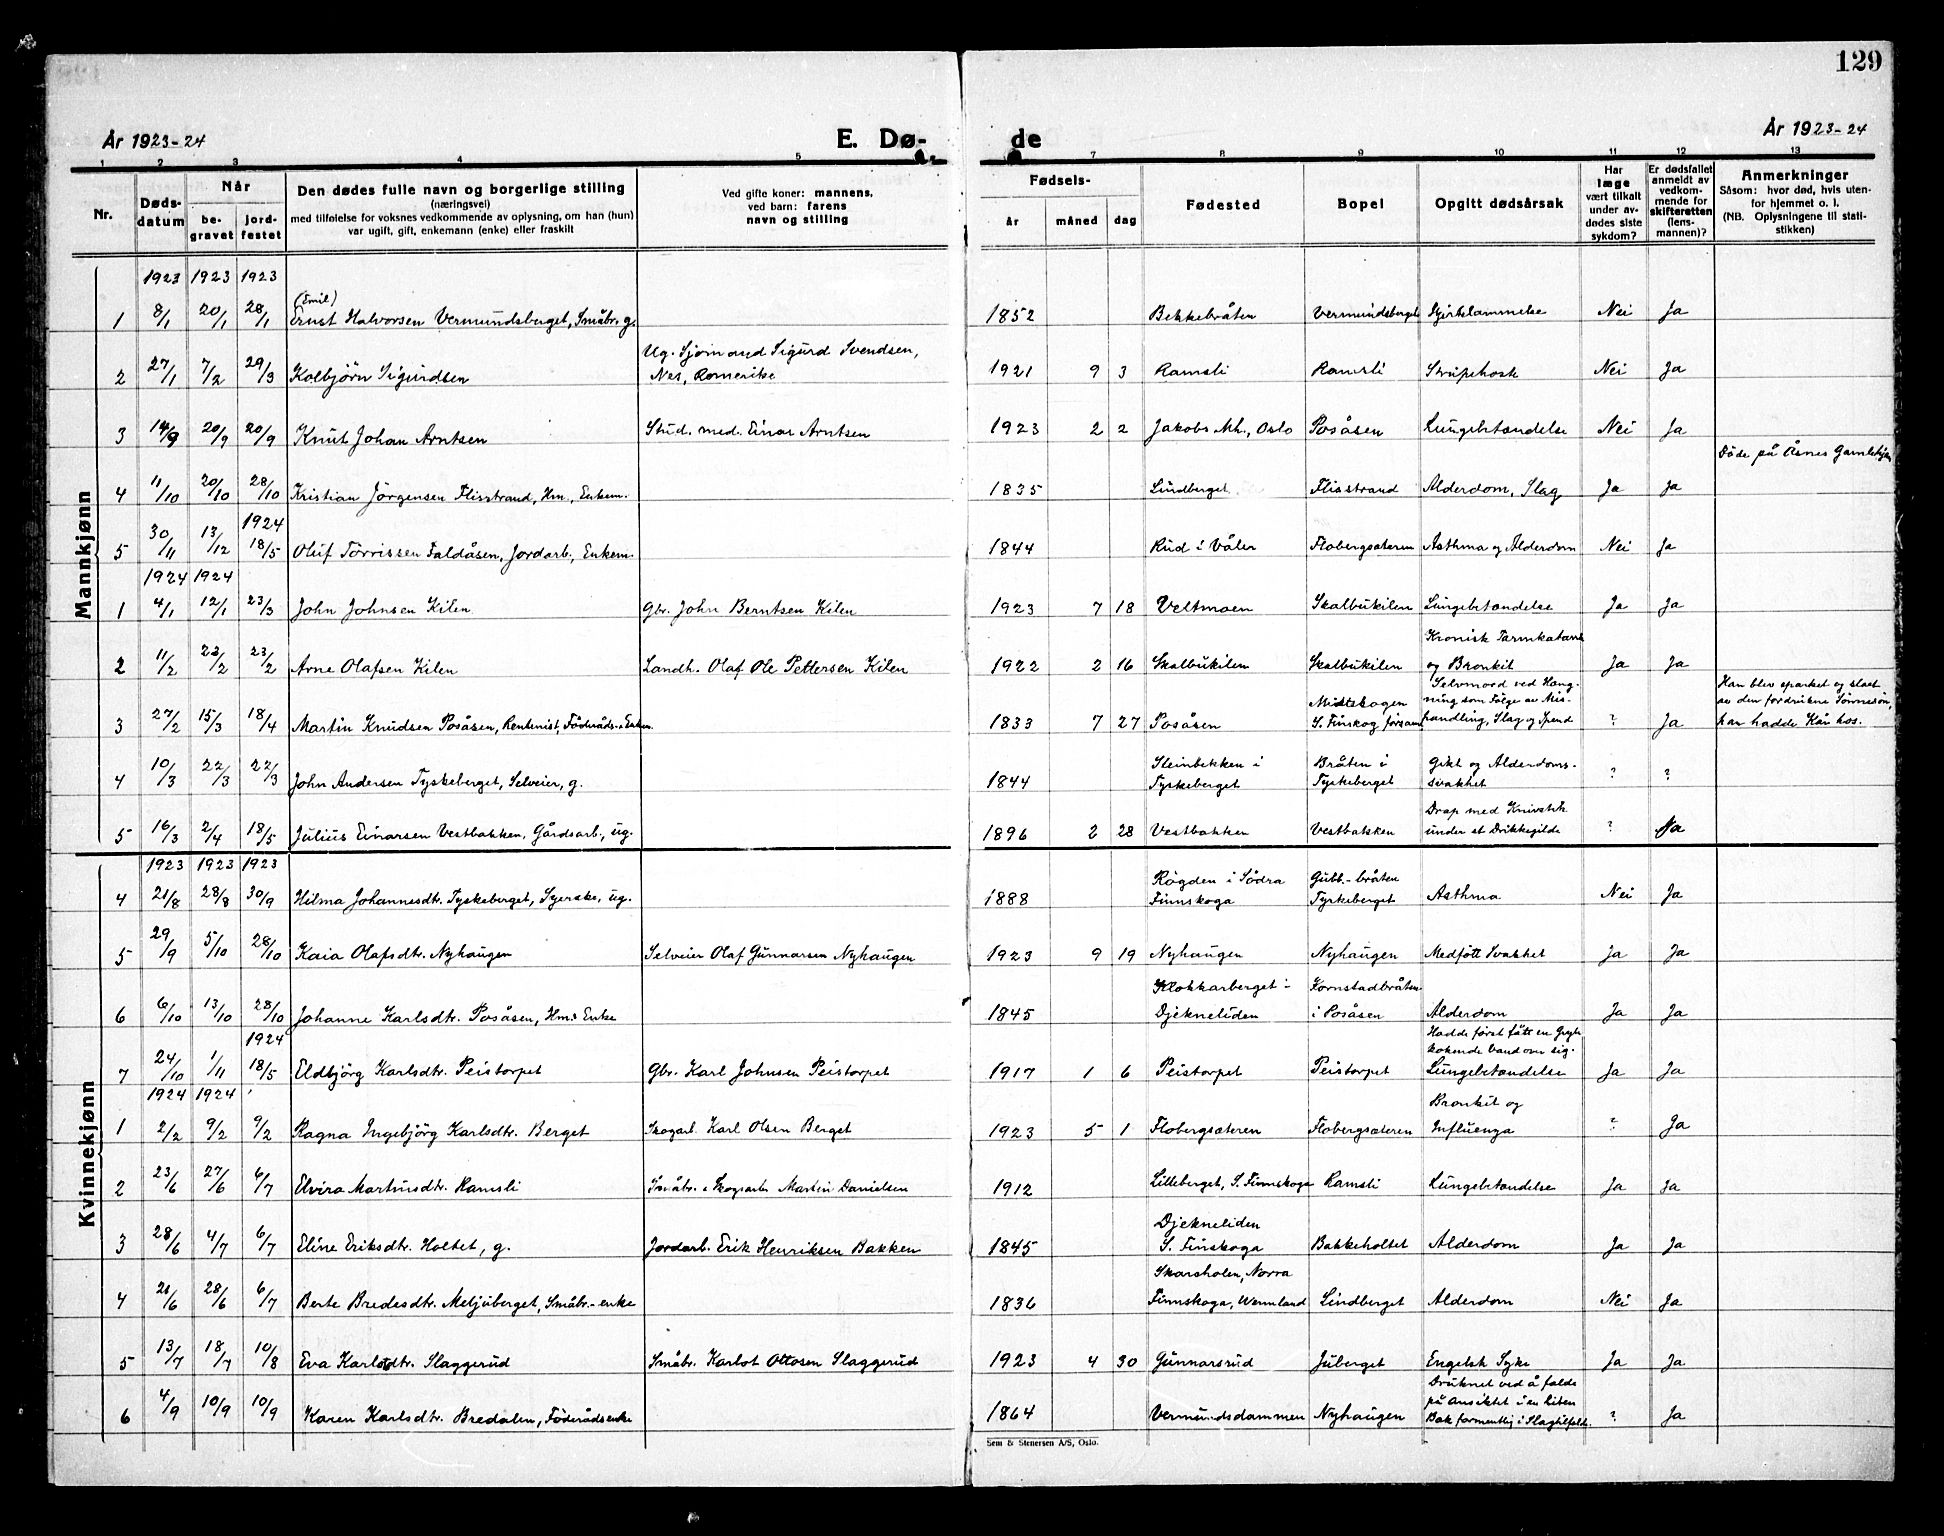 129
År 1923-24
E. Dø-
de
År 1923-24
1 2 3 4 5 7 8 9 10 11 12 13
Nr.
Døds-
datum
Når
be-
gravet
jord-
festet
Den dødes fulle navn og borgerlige stilling
(næringsvei)
med tilføielse for voksnes vedkommende av oplysning, om han (hun)
var ugift, gift, enkemann (enke) eller fraskilt
Ved gifte koner: mannens,
ved barn: farens
navn og stilling
Fødsels-
år måned dag
Fødested
Bopel
Opgitt dødsårsak
Har
læge
vært tilkalt
under av-
dødes siste
sykdom?
Er dødsfallet
anmeldt av
vedkom-
mende for
skifteretten
(lens-
mannen)?
Anmerkninger
Såsom: hvor død, hvis uten-
for hjemmet o. l.
(NB. Oplysningene til stati-
stikken)
Mannkjønn
1923 1923 1923
(Emil)
1 8/1 20/1 28/1 Ernst Halvorsen Vermundsberget, Småbr. g. 1852 Bekkebråten Vermundsberget Hjertelammelse Nei Ja
Ug. Sjømand Sigurd Svendsen,
2 27/1 7/2 29/3 Kolbjörn Sigurdsen Nes, Romerike 1921 9 3 Ramsli Ramsli Strupehoste Nei Ja
3 14/9 20/9 20/9 Knut Johan Arntsen Stud. med. Einar Arntsen 1923 2 2 Jakobs Mh., Oslo Posåsen Lungebetændelse Nei Ja
Döde på Åsnes Gamlehjem
4 11/10 20/10 28/10 Kristian Jörgensen Flisstrand, Hm., Enkem. 1835 Lindberget Flisstrand Alderdom, Slag Ja Ja
1924
5 30/11 13/12 18/5 Oluf Törrissen Faldåsen, Jordarb., Enkem. 1844 Rud i Våler Flobergsæteren Asthma og Alderdom Nei Ja
1924 1924
1 4/1 12/1 23/3 John Johnsen Kilen Gbr. John Berntsen Kilen 1923 7 18 Veltmoen Skalbukilen Lungebetændelse Ja Ja
Kronisk Tarmkatarrh
2 11/2 23/2 23/2 Arne Olafsen Kilen Landh. Olaf Ole Pettersen Kilen 1922 2 16 Skalbukilen Skalbukilen og Bronkit Ja Ja
Midtskogen Selvmord ved Hæng- Han blev sparket og slaat
S. Finskog forsaml. ning som Fölge av Mis- av den fordrukne Sönnesön,
3 27/2 15/3 18/4 Martin Knudsen Posåsen, Rentenist, Föderåds-Enkem. 1833 7 27 Posåsen handling, Slag og Spend ? Ja han hadde Kår hos.
Steinbekken i Bråten i Gikt og Alderdoms-
4 10/3 22/3 22/3 John Andersen Tyskeberget, Selveier, g. 1844 Tyskeberget Tyskeberget svakhet ? ?
Drap med Knivstik
5 16/3 2/4 18/5 Julius Einarsen Vestbakken, Gårdsarb., ug. 1896 2 28 Vestbakken Vestbakken under et Drikkegilde ? Ja
Kvinnekjønn
1923 1923 1923
Rögden i Södra Gubb.-bråten
4 21/8 28/8 30/9 Hilma Johannesdtr. Tyskeberget, Syerske, ug. 1888 Finnskoga Tyskeberget Asthma Nei Ja
5 29/9 5/10 28/10 Kaia Olafsdtr. Nyhaugen Selveier Olaf Gunnarsen Nyhaugen 1923 9 19 Nyhaugen Nyhaugen Medfött Svakhet Ja Ja
Klokkarberget i Kornstadbråten
6 6/10 13/10 28/10 Johanne Karlsdtr. Posåsen, Hm.s Enke 1845 Djekneliden i Posåsen Alderdom Ja Ja
1924 Hadde först fått en Gryte
kokende Vand over sig.
7 24/10 1/11 18/5 Eldbjörg Karlsdtr. Peistorpet Gbr. Karl Johnsen Peistorpet 1917 1 6 Peistorpet Peistorpet Lungebetændelse Ja Ja
1924 1924
Bronkit og
1 2/2 9/2 9/2 Ragna Ingebjörg Karlsdtr. Berget Skogarb. Karl Olsen Berget 1923 5 1 Flobergsæteren Flobergsæteren Influenza ? Ja
2 23/6 27/6 6/7 Elvira Martinsdtr. Ramsli Småbr. & Skogsarb. Martin Danielsen 1912 Lilleberget, S. Finnskoga Ramsli Lungebetændelse Ja Ja
Djekneliden
3 28/6 4/7 6/7 Eline Eriksdtr. Holtet, g. Jordarb. Erik Henriksen Bakken 1845 S. Finskoga Bakkeholtet Alderdom Ja Ja
Skarsholen, Norra
4 21/6 28/6 6/7 Berte Bredesdtr. Meljuberget, Småbr.-enke 1836 Finnskoga, Wermland Lindberget Alderdom Nei Ja
5 13/7 18/7 10/8 Eva Karlotdtr. Slaggerud Småbr. Karlot Ottosen Slaggerud 1923 4 30 Gunnarsrud Juberget Engelsk Syke Ja Ja
Druknet ved å falde
på Ansiktet i en liten
6 4/9 10/9 10/9 Karen Karlsdtr. Bredalen, Föderådsenke 1864 Vermundsdammen Nyhaugen Bæk formentlig i Slagtilfelde. ? Ja
Sem & Stenersen A/S, Oslo.